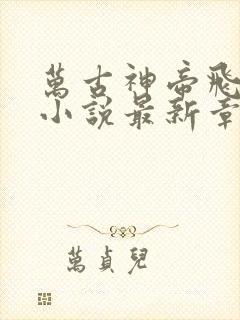 萬古神帝飛
小說最新章
萬貞兒